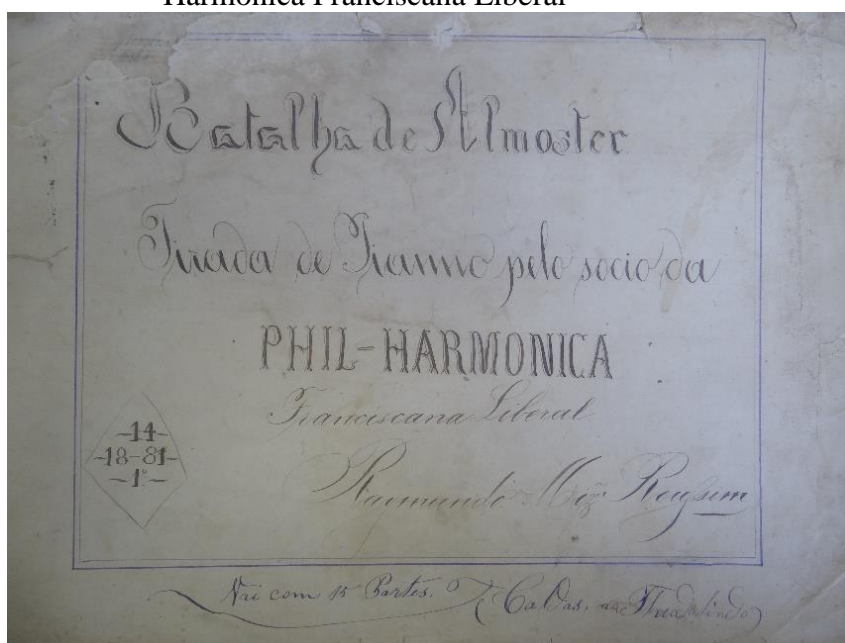 Harmônica Franciscana Liberal
Batalha de Almoster
Tirada de Pianno pelo socio da
PHIL-HARMONICA
Franciscana Liberal
-14-
-18-81-
-1º-
Raymundo Miz
Vai com 15 Partes.